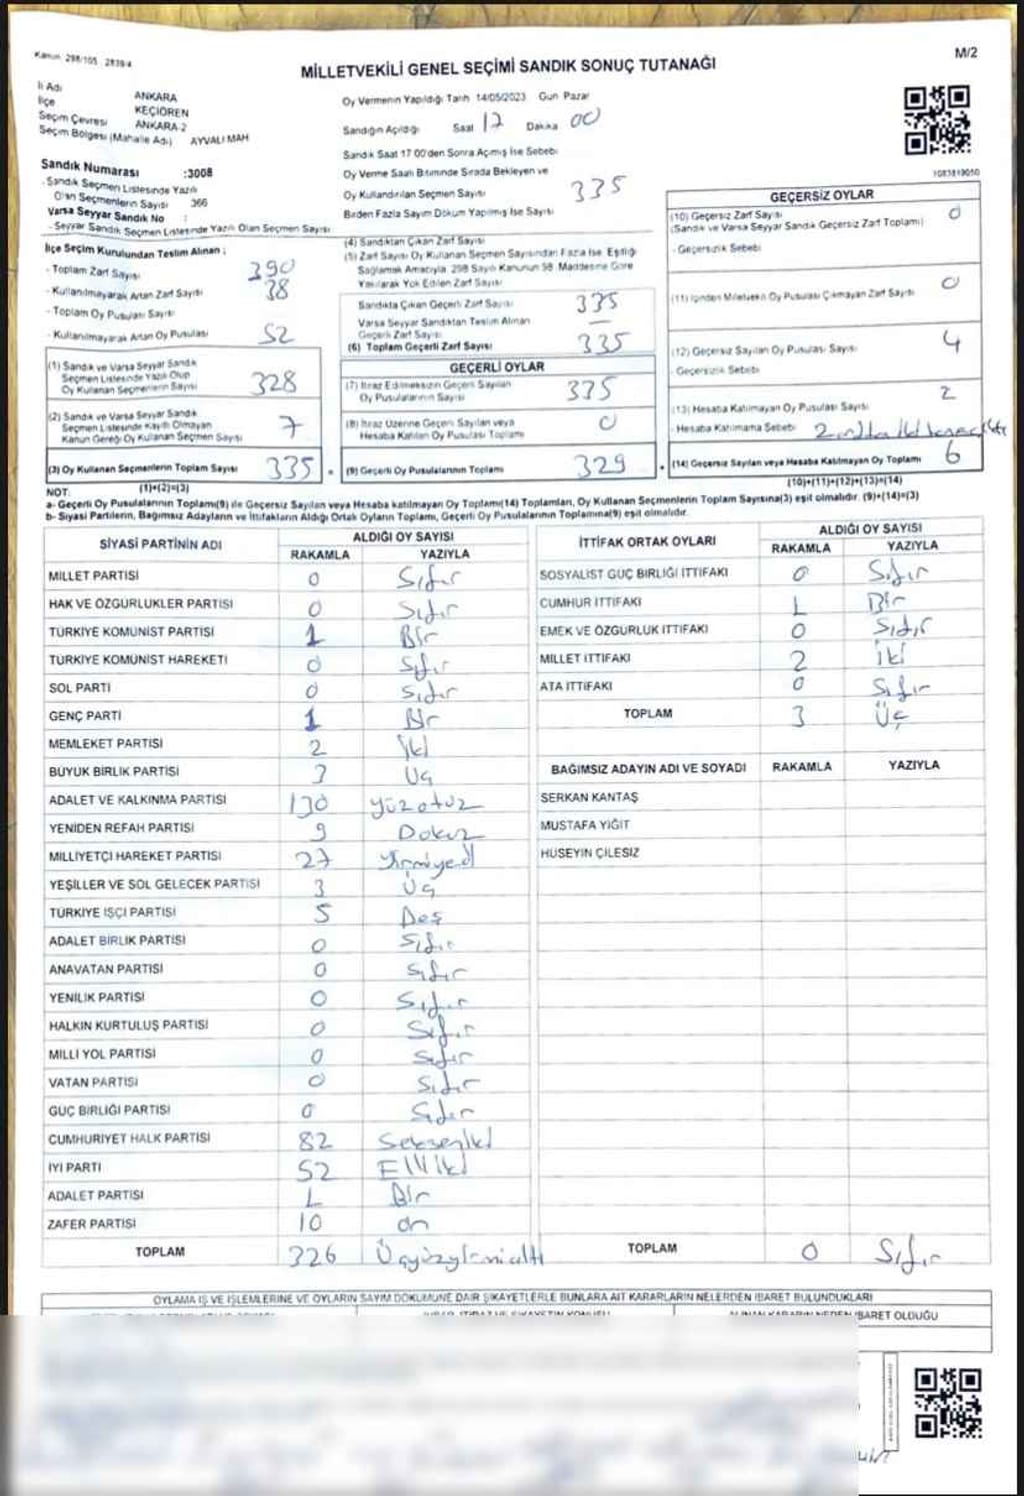 Kanun: 298/105 2839/4
M/2
MİLLETVEKİLİ GENEL SEÇİMİ SANDIK SONUÇ TUTANAĞI
İl Adı ANKARA
İlçe KEÇİÖREN
Seçim Çevresi ANKARA-2
Seçim Bölgesi (Mahalle Adı) AYVALI MAH
Sandık Numarası :3008
- Sandık Seçmen Listesinde Yazılı
Olan Seçmenlerin Sayısı 366
Varsa Seyyar Sandık No :
- Seyyar Sandık Seçmen Listesinde Yazılı Olan Seçmen Sayısı
Oy Vermenin Yapıldığı Tarih 14/05/2023 Gün Pazar
Sandığın Açıldığı Saat 17 Dakika 00
Sandık Saat 17 00'den Sonra Açmış İse Sebebi
Oy Verme Saati Bitiminde Sırada Bekleyen ve
Oy Kullandırılan Seçmen Sayısı 335
Birden Fazla Sayım Döküm Yapılmış İse Sayısı
İlçe Seçim Kurulundan Teslim Alınan ;
- Toplam Zarf Sayısı 390
- Kullanılmayarak Artan Zarf Sayısı 38
- Toplam Oy Pusulası Sayısı
- Kullanılmayarak Artan Oy Pusulası 52
(1) Sandık ve Varsa Seyyar Sandık
Seçmen Listesinde Yazılı Olup
Oy Kullanan Seçmenlerin Sayısı 328
(2) Sandık ve Varsa Seyyar Sandık
Seçmen Listesinde Kayıtlı Olmayan
Kanun Gereği Oy Kullanan Seçmen Sayısı 7
(3) Oy Kullanan Seçmenlerin Toplam Sayısı 335
(1)+(2)=(3)
(4) Sandıktan Çıkan Zarf Sayısı
(5) Zarf Sayısı Oy Kullanan Seçmen Sayısından Fazla İse, Eşitliği
Sağlamak Amacıyla, 298 Sayılı Kanunun 98. Maddesine Göre
Yakılarak Yok Edilen Zarf Sayısı
Sandıkta Çıkan Geçerli Zarf Sayısı 335
Varsa Seyyar Sandıktan Teslim Alınan
Geçerli Zarf Sayısı —
(6) Toplam Geçerli Zarf Sayısı 335
GEÇERLİ OYLAR
(7) İtiraz Edilmeksizin Geçerli Sayılan
Oy Pusulalarının Sayısı 335
(8) İtiraz Üzerine Geçerli Sayılan veya
Hesaba Katılan Oy Pusulası Toplamı 0
(9) Geçerli Oy Pusulalarının Toplamı 329
1083819050
GEÇERSİZ OYLAR
(10) Geçersiz Zarf Sayısı 0
(Sandık ve Varsa Seyyar Sandık Geçersiz Zarf Toplamı)
- Geçersizlik Sebebi
(11) İçinden Milletvekili Oy Pusulası Çıkmayan Zarf Sayısı 0
(12) Geçersiz Sayılan Oy Pusulası Sayısı 4
- Geçersizlik Sebebi
(13) Hesaba Katılmayan Oy Pusulası Sayısı 2
- Hesaba Katılmama Sebebi
(14) Geçersiz Sayılan veya Hesaba Katılmayan Oy Toplamı 6
(10)+(11)+(12)+(13)=(14)
NOT:
a- Geçerli Oy Pusulalarının Toplamı(9) ile Geçersiz Sayılan veya Hesaba katılmayan Oy Toplamı(14) Toplamları, Oy Kullanan Seçmenlerin Toplam Sayısına(3) eşit olmalıdır. (9)+(14)=(3)
b- Siyasi Partilerin, Bağımsız Adayların ve İttifakların Aldığı Ortak Oyların Toplamı, Geçerli Oy Pusulalarının Toplamına(9) eşit olmalıdır.
SİYASİ PARTİNİN ADI ALDIĞI OY SAYISI
RAKAMLA YAZIYLA
MİLLET PARTİSİ 0 Sıfır
HAK VE ÖZGÜRLÜKLER PARTİSİ 0 Sıfır
TÜRKİYE KOMÜNİST PARTİSİ 1 Bir
TÜRKİYE KOMÜNİST HAREKETİ 0 Sıfır
SOL PARTİ 0 Sıfır
GENÇ PARTİ 1 Bir
MEMLEKET PARTİSİ 2 İki
BÜYÜK BİRLİK PARTİSİ 3 Üç
ADALET VE KALKINMA PARTİSİ 130 Yüzotuz
YENİDEN REFAH PARTİSİ 9 Dokuz
MİLLİYETÇİ HAREKET PARTİSİ 27 Yirmiyedi
YEŞİLLER VE SOL GELECEK PARTİSİ 3 Üç
TÜRKİYE İŞÇİ PARTİSİ 5 Beş
ADALET BİRLİK PARTİSİ 0 Sıfır
ANAVATAN PARTİSİ 0 Sıfır
YENİLİK PARTİSİ 0 Sıfır
HALKIN KURTULUŞ PARTİSİ 0 Sıfır
MİLLİ YOL PARTİSİ 0 Sıfır
VATAN PARTİSİ 0 Sıfır
GÜÇ BİRLİĞİ PARTİSİ 0 Sıfır
CUMHURİYET HALK PARTİSİ 82 Sekseniki
İYİ PARTİ 52 Elliiki
ADALET PARTİSİ 1 Bir
ZAFER PARTİSİ 10 On
TOPLAM 326 Üçyüzyirmialtı
İTTİFAK ORTAK OYLARI ALDIĞI OY SAYISI
RAKAMLA YAZIYLA
SOSYALİST GÜÇ BİRLİĞİ İTTİFAKI 0 Sıfır
CUMHUR İTTİFAKI 1 Bir
EMEK VE ÖZGÜRLÜK İTTİFAKI 0 Sıfır
MİLLET İTTİFAKI 2 İki
ATA İTTİFAKI 0 Sıfır
TOPLAM 3 Üç
BAĞIMSIZ ADAYIN ADI VE SOYADI RAKAMLA YAZIYLA
SERKAN KANTAŞ
MUSTAFA YİĞİT
HÜSEYİN ÇİLESİZ
TOPLAM 0 Sıfır
OYLAMA İŞ VE İŞLEMLERİNE VE OYLARIN SAYIM DÖKÜMÜNE DAİR ŞİKAYETLERLE BUNLARA AİT KARARLARIN NELERDEN İBARET BULUNDUKLARI
İBARET OLDUĞU